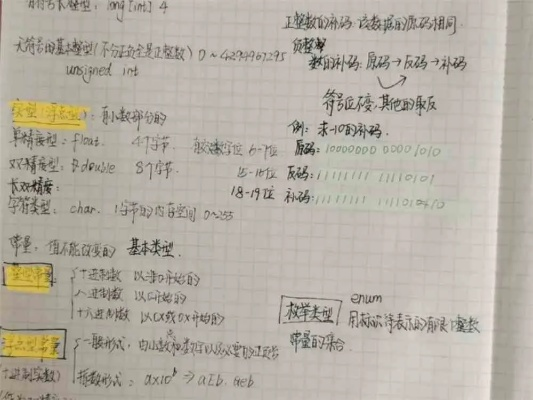 有符号长整型: long [int] 4
无符号的基本整型(不分正负全是正整数) 0~4294967295
unsigned int
实型(浮点型): 有小数部分的
单精度型: float. 4个字节. 有效数字位 6-7位
双精度型: double 8个字节. 15-16位
长双精度: 18-19位
字符类型: char. 1字节的内存空间 0~255
常量, 值不能改变的 基本类型.
整型常量
十进制数 以非0开始的
八进制数 以0开始的
十六进制数 以0X或0x开始的
浮点型常量
一般形式, 由小数
(十进制实数)
指数形式: a×10^b ⇒ aEb. aeb.
正整数的补码: 该数据的原码相同.
负整
数的补码: 原码→反码→补码
符号位不变, 其他的取反
例: 求-10的补码.
原码: 10000000 00001010
反码: 11111111 11110101
补码: 11111111
枚举类型 enum
用标识符表示的有限个整数
常量的集合.